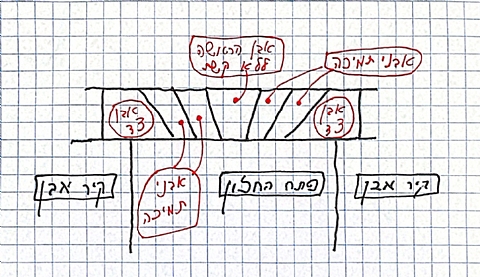 אבן הראשה
ללא קשת
אבני תמיכה
אבן
צד
אבן
צד
קיר אבן
אבני
תמיכה
פתח החלון
קיר אבן